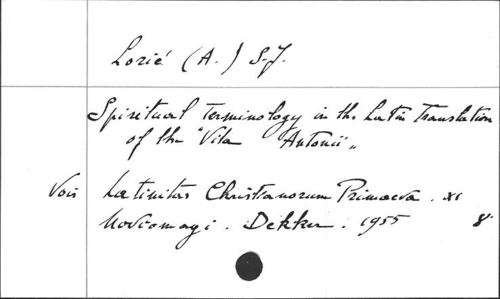 Lorié (A.) S.J.
Spiritual Terminology in the Latin Translation
of the "Vita Antonii"
Vois Latinitas Christianorum Primaeva. XI
Noviomagi. Dekker. 1955 8°